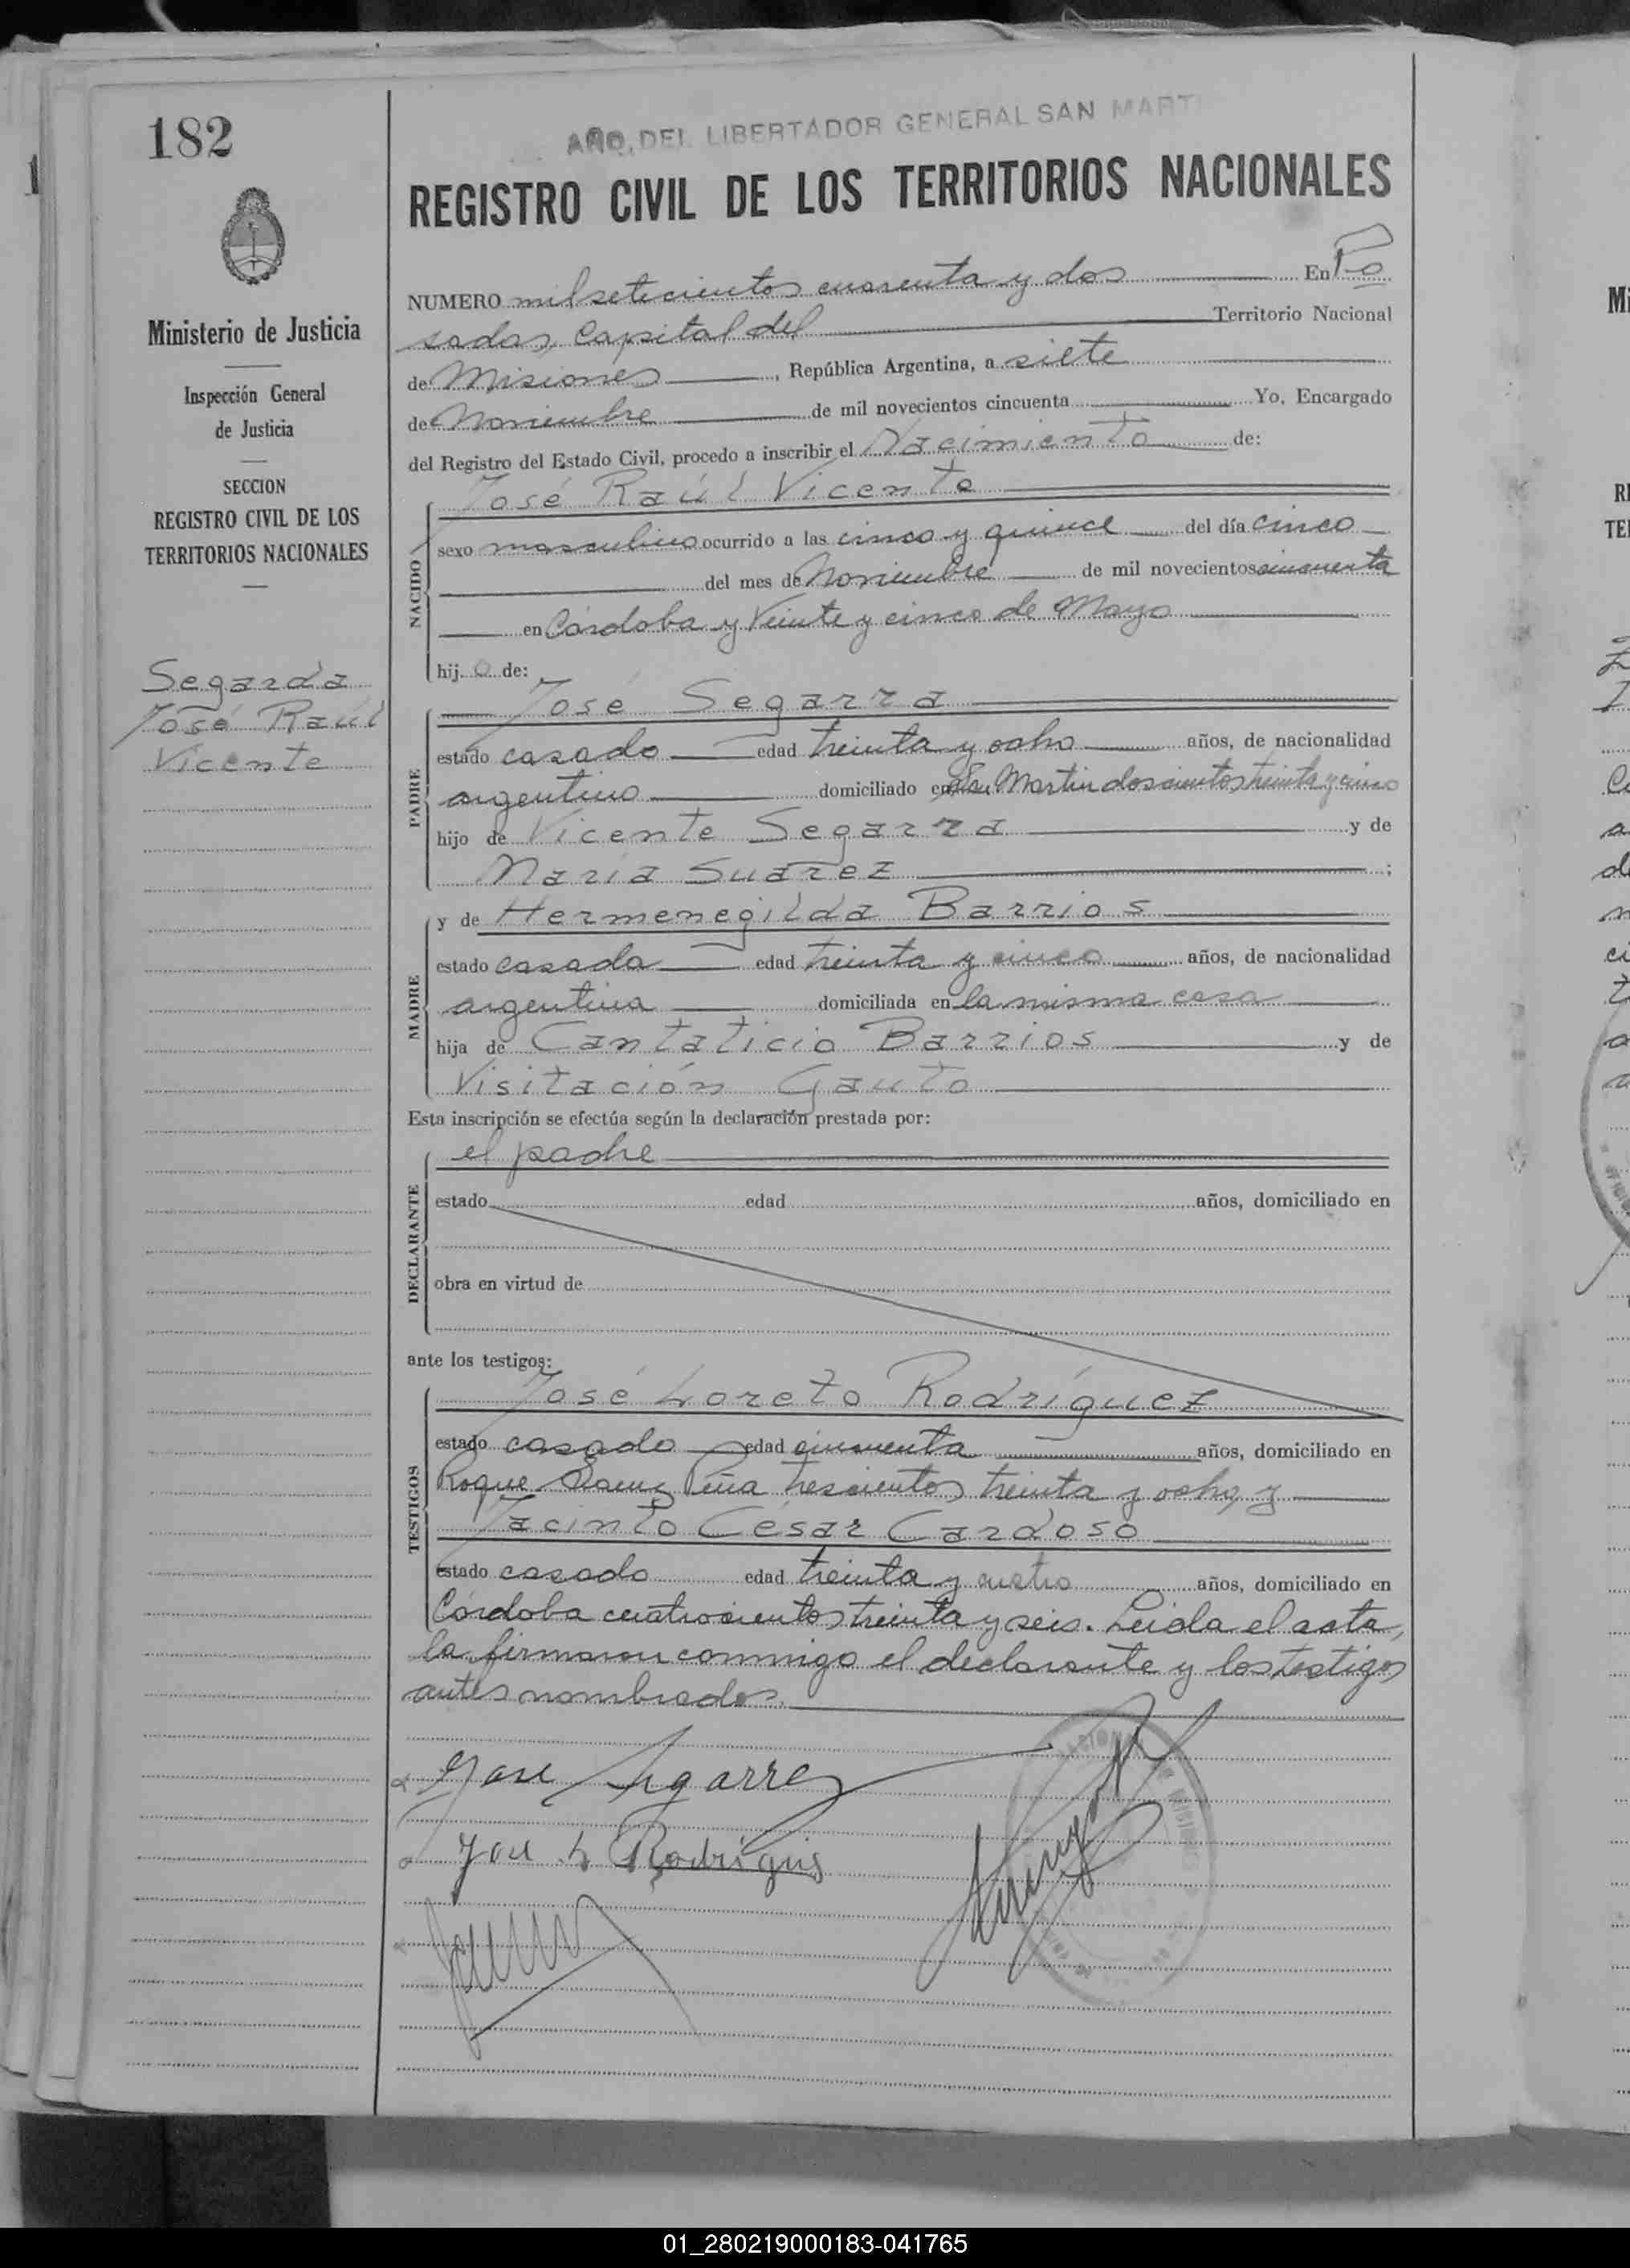 182
AÑO DEL LIBERTADOR GENERAL SAN MARTI
REGISTRO CIVIL DE LOS TERRITORIOS NACIONALES
Ministerio de Justicia
Inspección General
de Justicia
SECCION
REGISTRO CIVIL DE LOS
TERRITORIOS NACIONALES
Segarda
José Raúl
Vicente
NUMERO mil setecientos cuarenta y dos En Po
sadas, Capital del Territorio Nacional
de Misiones, República Argentina, a siete
de Noviembre de mil novecientos cincuenta Yo, Encargado
del Registro del Estado Civil, procedo a inscribir el Nacimiento de:
NACIDO
José Raúl Vicente
sexo masculino ocurrido a las cinco y quince del día cinco
del mes de Noviembre de mil novecientos cincuenta
en Córdoba y Veinte y cinco de Mayo
hijo de:
PADRE
José Segarra
estado casado edad treinta y ocho años, de nacionalidad
argentino domiciliado en San Martin doscientos treinta y cinco
hijo de Vicente Segarra y de
María Suarez ;
MADRE
y de Hermenegilda Barrios
estado casada edad treinta y cinco años, de nacionalidad
argentina domiciliada en la misma casa
hija de Cantalicio Barrios y de
Visitación Gauto
Esta inscripción se efectúa según la declaración prestada por:
DECLARANTE
el padre
estado edad años, domiciliado en
obra en virtud de
ante los testigos:
TESTIGOS
José Loreto Rodríguez
estado casado edad cincuenta años, domiciliado en
Roque Saenz Peña trescientos treinta y ocho, y
Jacinto César Cardoso
estado casado edad treinta y cuatro años, domiciliado en
Córdoba cuatrocientos treinta y seis. Leida el acta,
la firmaron conmigo el declarante y los testigos
antes nombrados.
Jose Segarra
Jose L Rodrigues
01_280219000183-041765